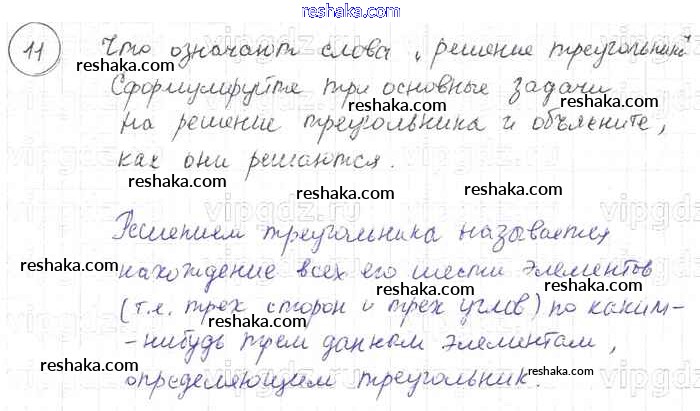 reshaka.com
11 Что означают слова „решение треугольника"
reshaka.com
reshaka.com
Сформулируйте три основные задачи
reshaka.com
на решение треугольника и объясните,
reshaka.com
как они решаются.
reshaka.com
reshaka.com
vipgdz.ru
Решением треугольника называется
reshaka.com
reshaka.com
нахождение всех его шести элементов
reshaka.com
(т.е. трех сторон и трех углов) по каким-
reshaka.com
-нибудь трем данным элементам,
reshaka.com
определяющим треугольник.
reshaka.com